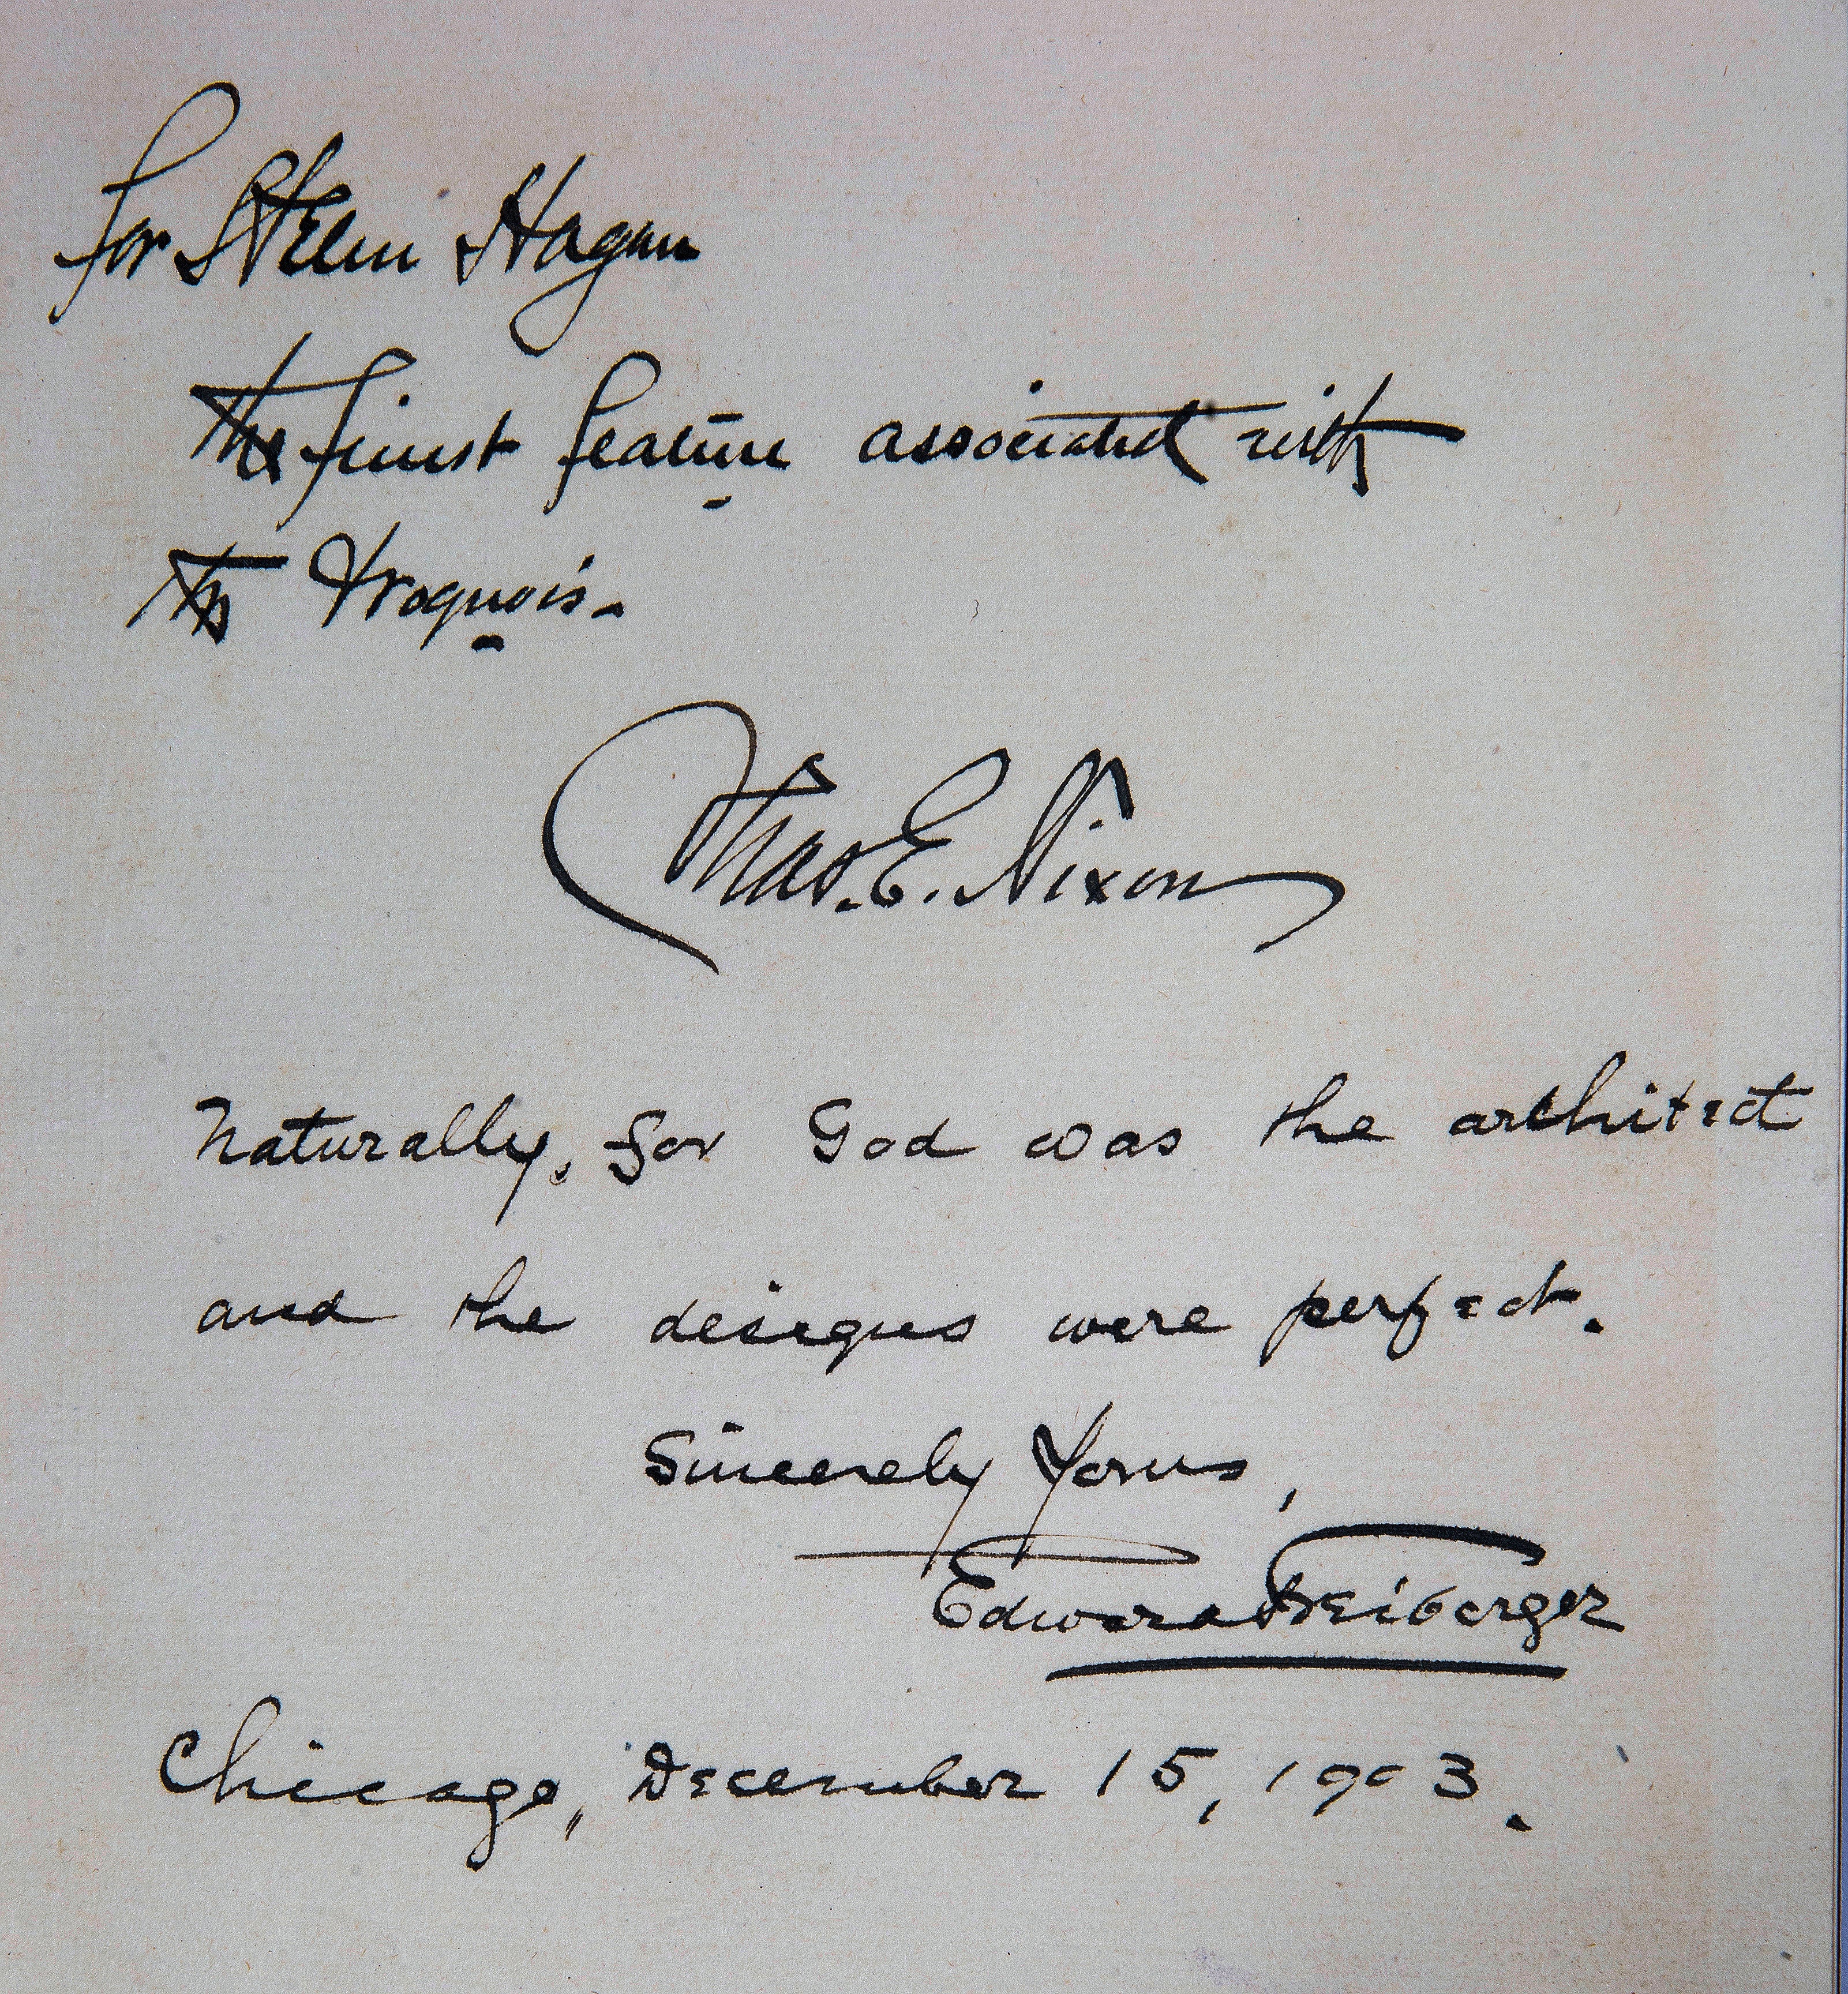 for Stella Hagan
the finest feature associated with
the Iroquois.
Thos. E. Nixon
Naturally, for God was the architect
and the designs were perfect.
Sincerely Yours,
Edward Freiberger
Chicago, December 15, 1903.